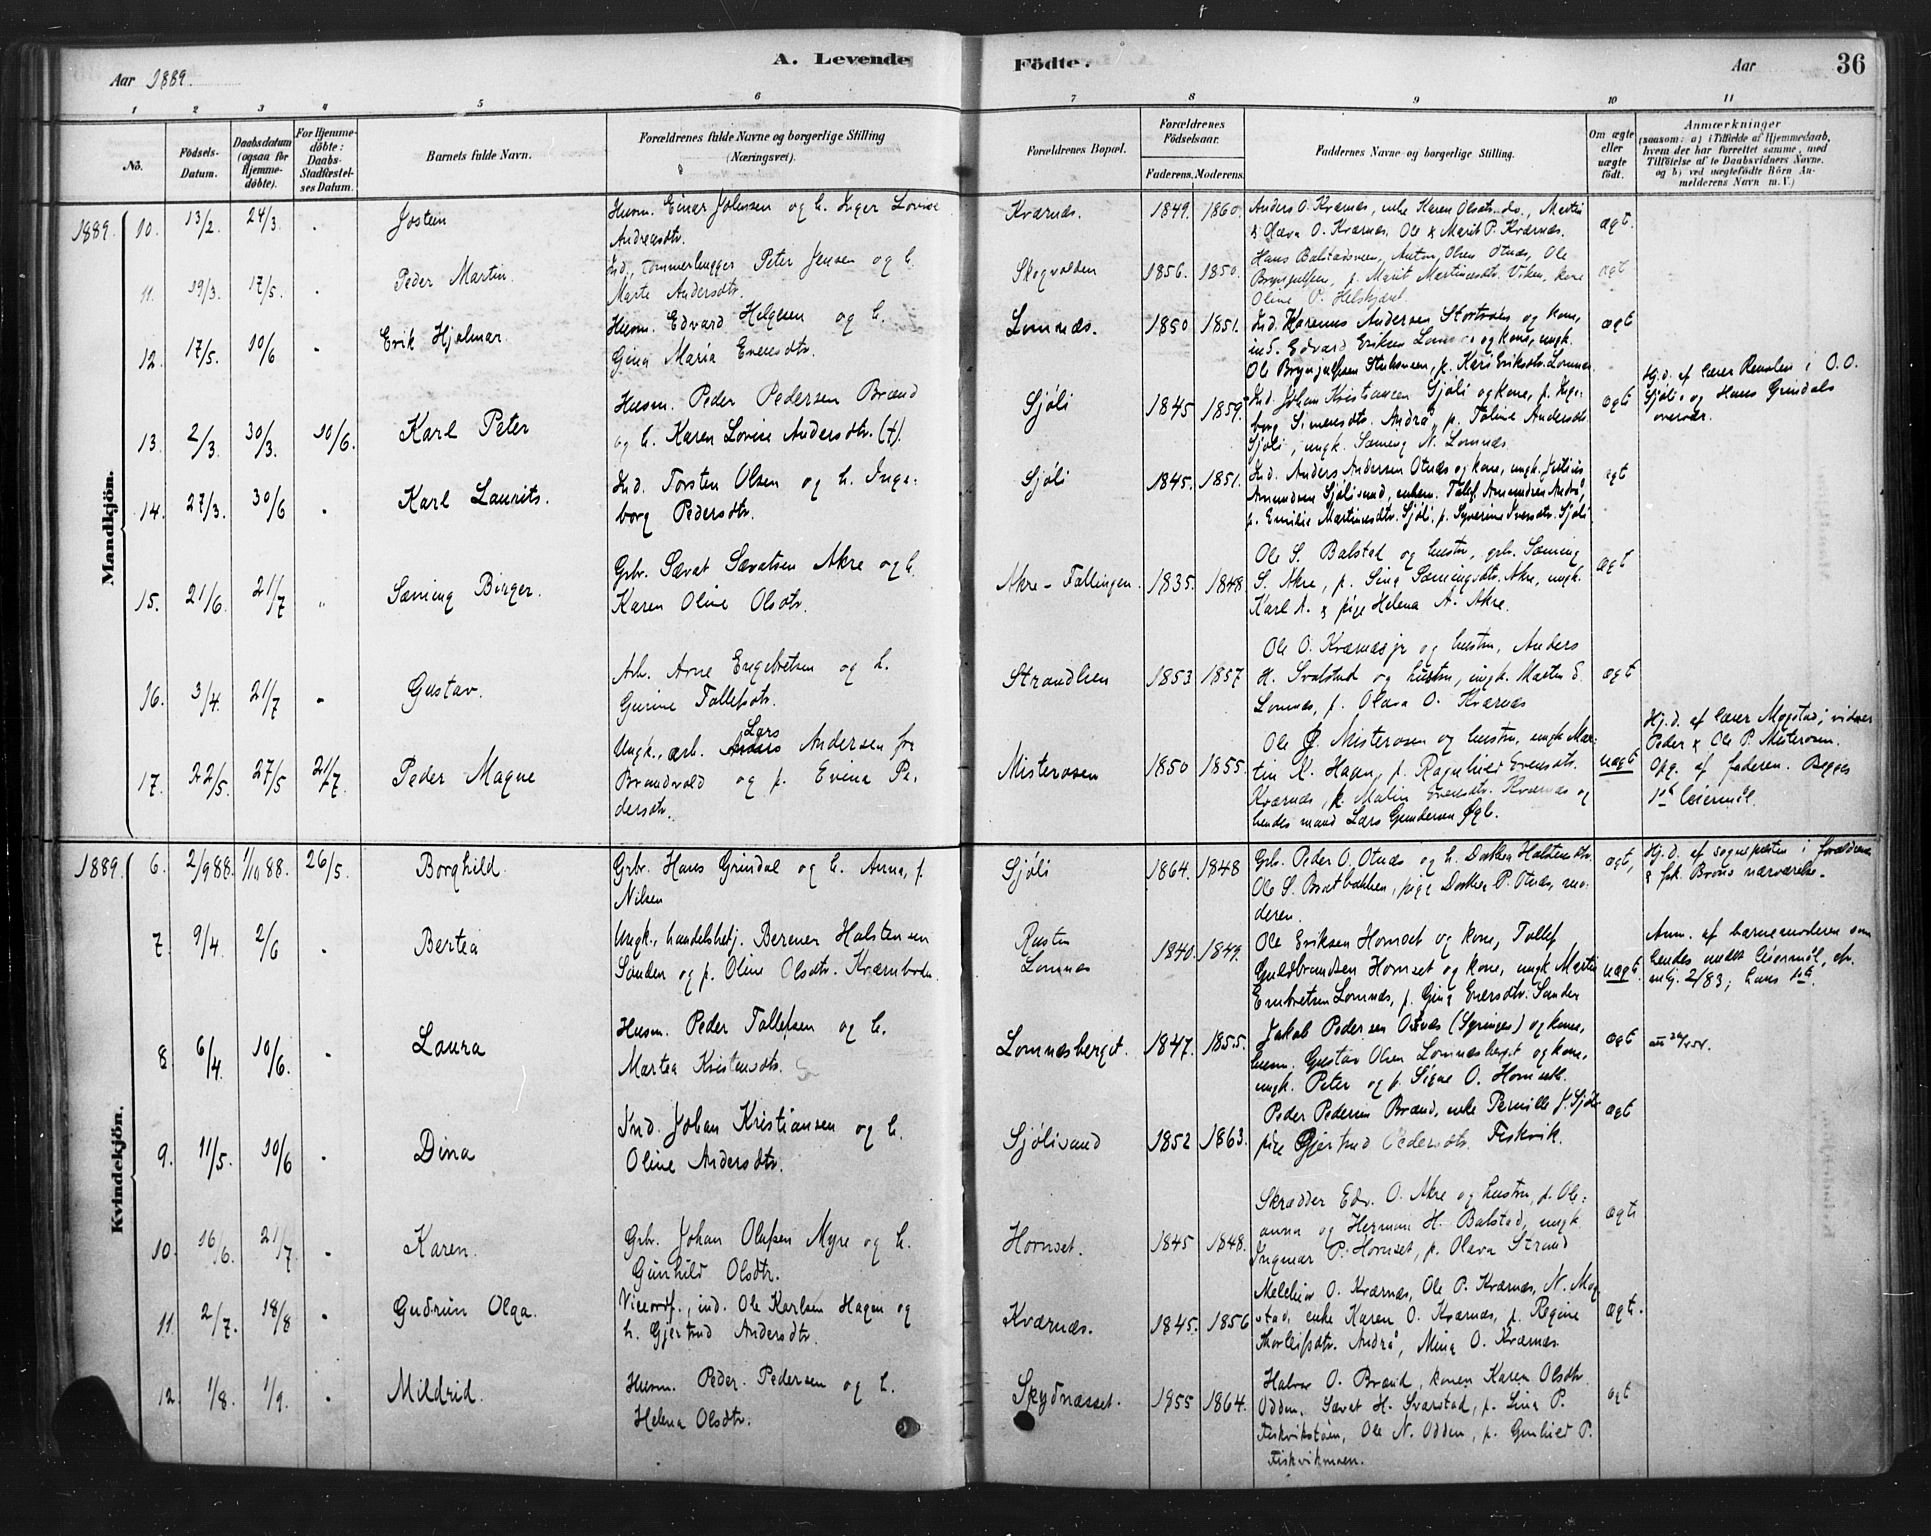 A. Levende
Födte.
Aar 1889.
Aar
36
1 2 3 4 5 6
7 8 9 10 11
No.
Födsels-Datum.
Daabsdatum (ogsaa for Hjemmedöbte).
For Hjemmedöbte: Daabs-Stadfæstelses Datum.
Barnets fulde Navn.
Forældrenes fulde Navne og borgerlige Stilling (Næringsvei).
Forældrenes Bopæl.
Forældrenes Födselsaar.
Faderens. Moderens.
Faddernes Navne og borgerlige Stilling.
Om ægte eller uægte födt.
Anmærkninger
(saasom: a) i Tilfælde af Hjemmedaab,
hvem der har forrettet samme, med
Tilföielse af to Daabsvidners Navne.
og b) ved uægtefödte Börn Anmelderens Navn m. V.)
Mandkjön.
1889. 10. 13/2. 24/3. Jostein
Husm. Einar Johnsen og h. Inger Lovise
Andreasdtr.
Kværnæs. 1849. 1860.
Anders O. Kværnæs, enke Karen Olsdtr. do., Martin
& Olava O. Kværnæs, Ole & Marit P. Kværnæs.
ægt.
11. 19/3. 17/5. Peder Martin.
Ind., tømmerhugger Peter Jensen og h.
Marte Andersdtr.
Skogvolden 1856. 1850.
Anton Olsen Otnæs, Ole
Bryngelsen, p. Marit Martinusdt. Viken, kone
Oline P.
ægt
12. 17/5. 10/6 Erik Hjalmar.
Husm. Edvard Helgesen og h.
Gina Maria Evensdtr.
Lomnæs. 1850 1851.
Ind. Karenus Andersen Stortroen og kone,
ind. Edvard Eriksen Lomnæs og kone, ungk.
Ole Bryngelsen, p. Kari Eriksdtr. Lomnæs
ægt
13. 2/3. 30/3. 10/6. Karl Peter
Husm. Peder Pedersen Brænd
og h. Karen Lovise Andersdtr. (†).
Sjøli 1845 1859.
Ind. Johan Kristiansen Sjøli og kone, p. Inge-
borg Simensdt. Andrå, p. Taline Andersdt.
Sjøli, ungk. Sæming N. Lomnæs.
ægte
Hj.d. af lærer Renolen i O.O.
Sjøli, og Hans Grindals
overvær.
14. 27/3. 30/6 Karl Laurits.
Ind. Torsten Olsen og h. Inge-
borg Pedersdtr.
Sjøli 1845. 1851.
Ind. Anders Andersen Otnæs og kone, ungk. Julius
Amundsen Sjølisand, enkem. Tollef Amundsen Andrå,
p. Emilie Martinusdtr. Sjøli, p. Syverine Iversdtr. Sjøli
ægt
15. 21/6. 21/7 " Sæming Birger.
Grbr. Sævat Sævatsen Akre og h.
Karen Oline Olsdtr.
Akre-Tallingen. 1835. 1848
Ole S. Balstad og hustru, grbr. Sæming
S. Akre, p. Sina Sæmingsdtr. Akre, ungk.
Karl A. & pige Helena A. Akre.
ægt
16. 3/4. 21/7 Gustav.
Arb. Arne Engebretsen og h.
Gurine Tollefsdtr.
Strandlien 1853 1857
Ole O. Kværnæs jr og hustru, Anders
H. Svalstad og hustru, ungk. Marten E.
Lomnæs, p. Olava O. Kværnæs
ægt
17. 22/5. 27/5 21/7. Peder Magne
Lars
Ungk., arb. Anders Andersen fra
Brandvold og p. Evina Pe-
dersdtr.
Misterosen 1850 1855.
Ole P. Misterosen og hustru, ungk Mar-
tin K. Hagen, p. Ragnhild Evensdtr.
Kværnæs, p. Malin Evensdtr. Kværnæs og
hendes mand Lars Gundersen Øgb.
uægt
Hj.d. af lærer Mogstad; vidner
Peder & Ole P. Misterosen.
Opg. af faderen. Begges
1ste leiermål.
Kvindekjön.
1889. 6. 2/9 88. 1/10 88. 26/5. Borghild.
Grbr. Hans Grindal og h. Anna, f.
Nilsen
Sjøli 1864. 1848
Grbr. Peder O. Otnæs og h. Dorthea Halstensdtr.
Ole S. Bratbakken, pige Dorthea P. Otnæs, mo-
deren.
ægt,
Hj.d. af sognepresten i forældrenes
& frk. Bruns nærværelse.
7. 9/4. 2/6 Bertea
Ungk., handelsbetj. Berener Halstensen
Sanden og p. Oline Olsdtr. Kværnboden
Rusten
Lomnæs 1840. 1849.
Ole Eriksen Hornset og kone, Tollef
Guldbrandsen Hornset og kone, ungk Martin
Embretsen Lomnæs, p. Gina Eversdtr. Sanden
uægt.
Anm. af barnemoderen som
hendes andet leiermål, 2/83; hans 1ste.
8. 6/4. 10/6. Laura
Husm. Peder Tollefsen og h.
Martea Kristensdtr.
Lomnæsberget. 1847. 1855.
Jakob Pedersen Otnæs (Syringen) og kone,
husm. Gustav Olsen Lomnæsberget og kone,
ungk. Peter og p. Signe O. Hornset.
ægt
9. 11/5. 10/6 Dina
Ind. Johan Kristiansen og h.
Oline Andersdtr.
Sjølisand 1852 1863.
Peder Pedersen Brænd, enke Pernille J. Sjøli
pige Gjertrud Pedersdtr. Fiskvik.
ægt
10. 16/6. 21/7. Karen.
Grbr. Johan Olafsen Myre og h.
Gunhild Olsdtr.
Hornset. 1845 1848.
Skrædder Edv. O. Akre og hustru, p. Ole-
anna og Herman H. Balstad, ungk.
Ingmar P. Hornset, p. Olava Strand
ægt
11. 2/7. 18/8 Gudrun Olga.
Viceordf., ind. Ole Karlsen Hagen og
h. Gjertrud Andersdtr.
Kværnæs. 1845. 1856
Melchior O. Kværnæs, Ole P. Kværnæs, N. Mog-
stad, enke Karen O. Kværnæs, p. Regine
Thorleifsdtr. Andrå, Mina O. Kværnæs.
ægt.
12. 1/8. 1/9. Mildrid.
Husm. Peder Pedersen og h.
Helena Olsdtr.
Skydnæsset. 1855 1864.
Halvor O. Brænd, konen Karen Olsdtr.
Odden, Sævat H. Svarstad, p. Lina P.
Fiskvikstøen, Ole N. Odden, p. Gunhild P.
Fiskvikmoen.
ægt